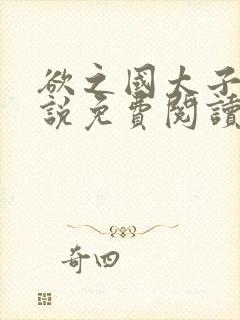 欲之國大子
說免費閱讀
奇四